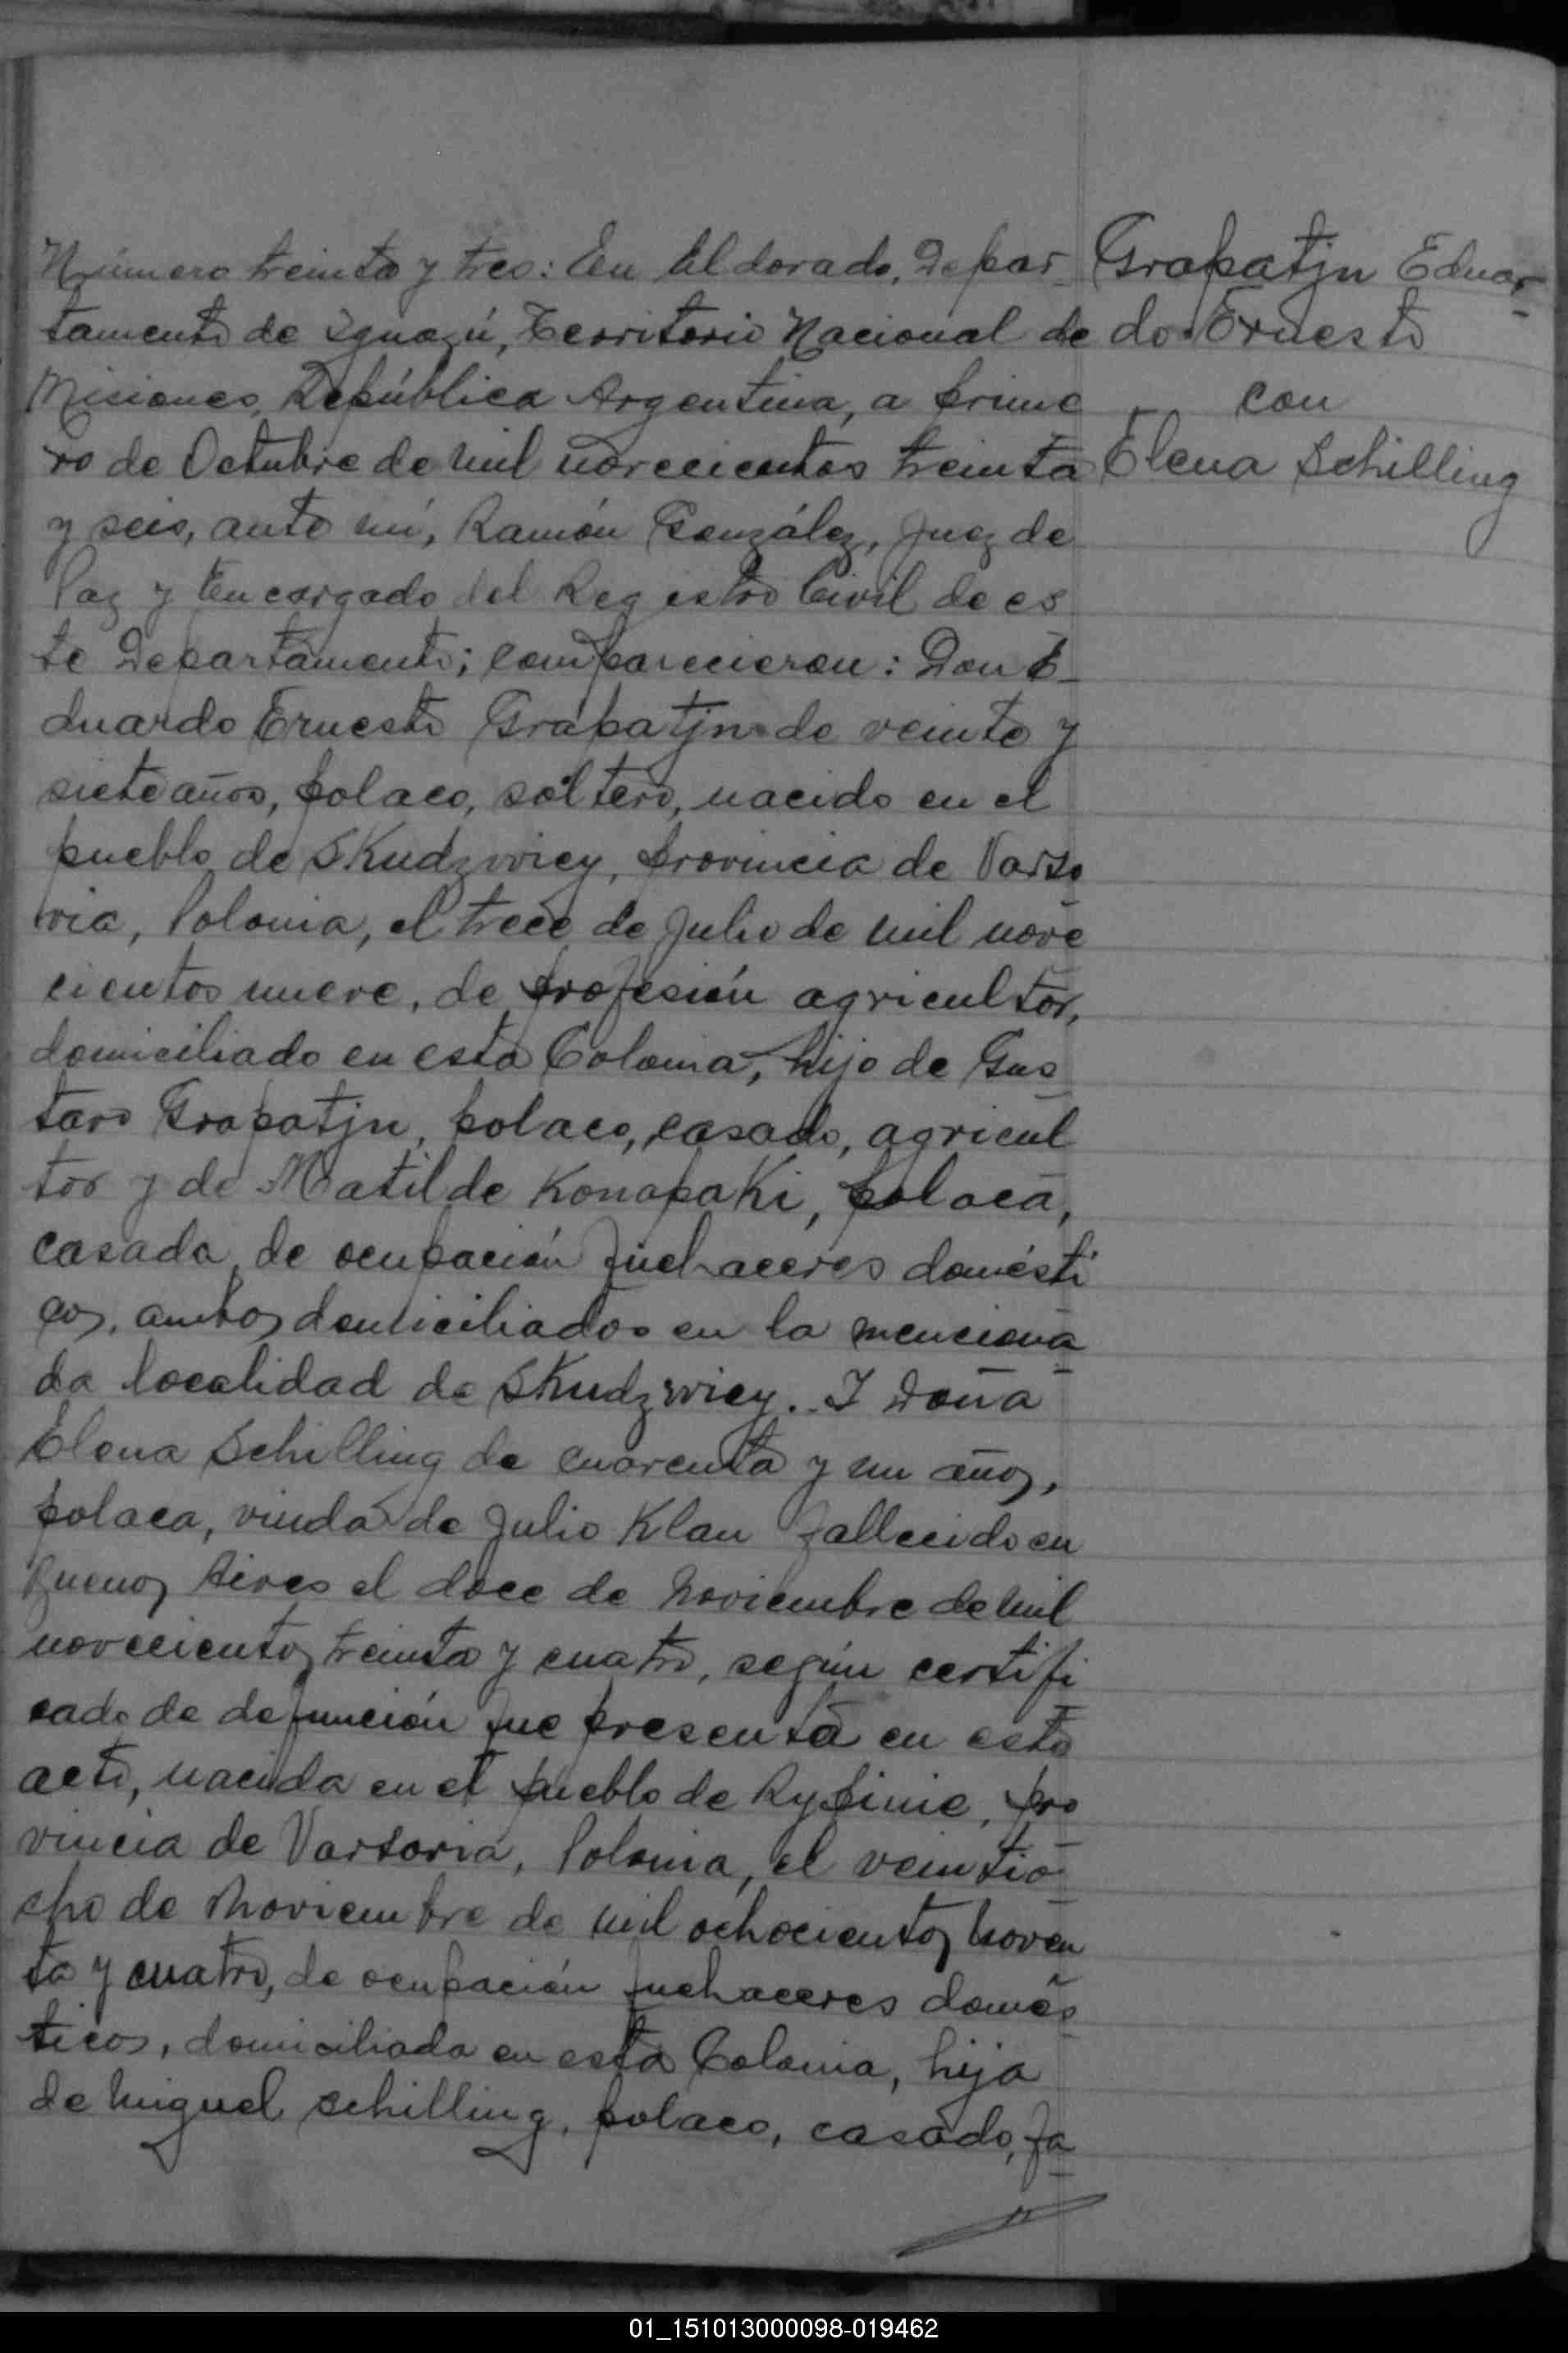 Número treinta y tres: En Eldorado, Depar
tamento de Iguazú, Territorio Nacional de
Misiones, República Argentina, a prime
ro de Octubre de mil novecientos treinta
y seis, ante mí, Ramón González, Juez de
Paz y Encargado del Registro Civil de es
te Departamento; comparecieron: Don E-
duardo Ernesto Grapatjn de veinte y
siete años, polaco, soltero, nacido en el
pueblo de Skudzwiey, provincia de Varso
via, Polonia, el trece de Julio de mil nove
cientos nueve, de profesión agricultor,
domiciliado en esta Colonia, hijo de Gus
tavo Grapatjn, polaco, casado, agricul
tor y de Matilde Konapaki, polaca,
casada, de ocupación quehaceres domésti
cos, ambos domiciliados en la menciona
da localidad de Skudzwiey. Y Doña
Elena Schilling de cuarenta y un años,
polaca, viuda de Julio Klan fallecido en
Buenos Aires el doce de Noviembre de mil
novecientos treinta y cuatro, según certifi
cado de defunción que presenta en este
acto, nacida en el pueblo de Rypinie, pro
vincia de Varsovia, Polonia, el veintio
cho de Noviembre de mil ochocientos noven
ta y cuatro, de ocupación quehaceres domés
ticos, domiciliada en esta Colonia, hija
de Miguel Schilling, polaco, casado, fa
Grapatjn Eduar-
do Ernesto
con
Elena Schilling
01_151013000098-019462